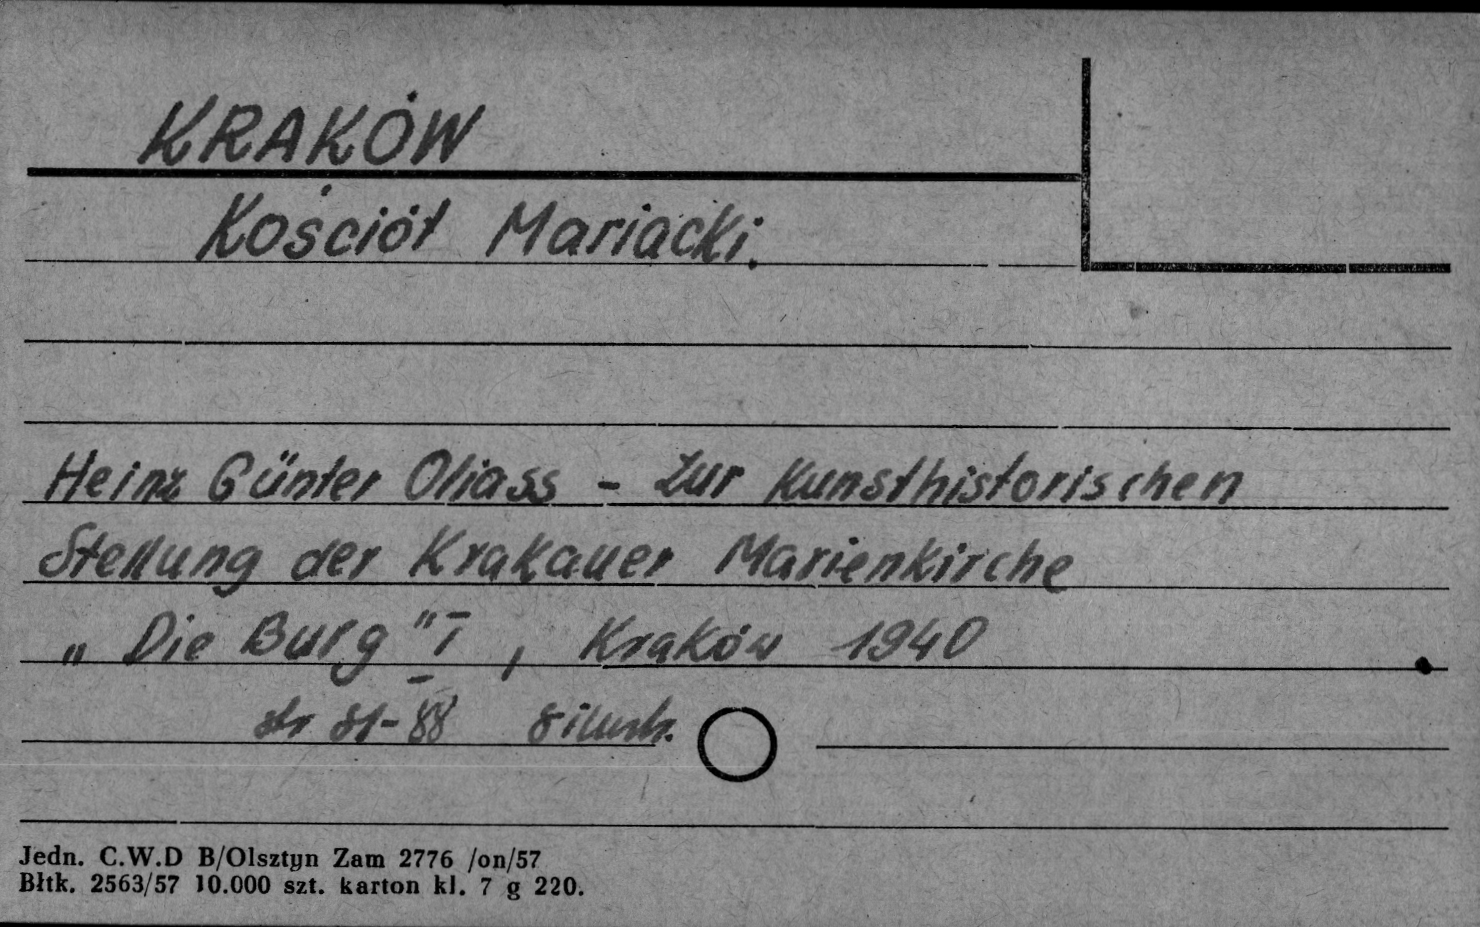 KRAKÓW
Kościół Mariacki.
Heinz Günter Oliass - Zur Kunsthistorischen
Stellung der Krakauer Marienkirche
„Die Burg" I, Kraków 1940
str 81-88 8 ilustr.
Jedn. C.W.D B/Olsztyn Zam 2776 /on/57
Błtk. 2563/57 10.000 szt. karton kl. 7 g 220.